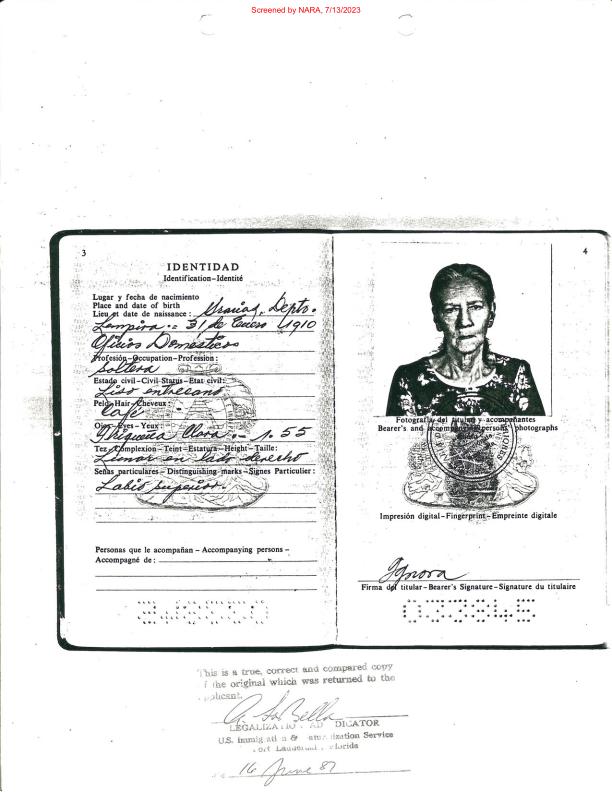 Screened by NARA, 7/13/2023
3
IDENTIDAD
Identification–Identité
Lugar y fecha de nacimiento
Place and date of birth
Lieu et date de naissance: Gracias, Depto.
Lempira.- 31 de Enero 1910
Oficios Domésticos
Profesión–Occupation–Profession:
Soltera
Estado civil–Civil Status–Etat civil:
Liso entrecano
Pelo–Hair–Cheveux:
Café
Ojos–Eyes–Yeux:
Trigueña Clara.- 1.55
Tez–Complexion–Teint–Estatura–Height–Taille:
Lunar en lado derecho
Señas particulares–Distinguishing marks–Signes Particulier:
Labio superior.
Personas que le acompañan – Accompanying persons –
Accompagné de:
4
Fotografía del titular y acompañantes
Bearer's and accompanying persons photographs
Impresión digital–Fingerprint–Empreinte digitale
Ignora
Firma del titular–Bearer's Signature–Signature du titulaire
033845
This is a true, correct and compared copy
of the original which was returned to the
applicant.
LEGALIZATION ADJUDICATOR
U.S. Immigration & Naturalization Service
Fort Lauderdale, Florida
16 June 87